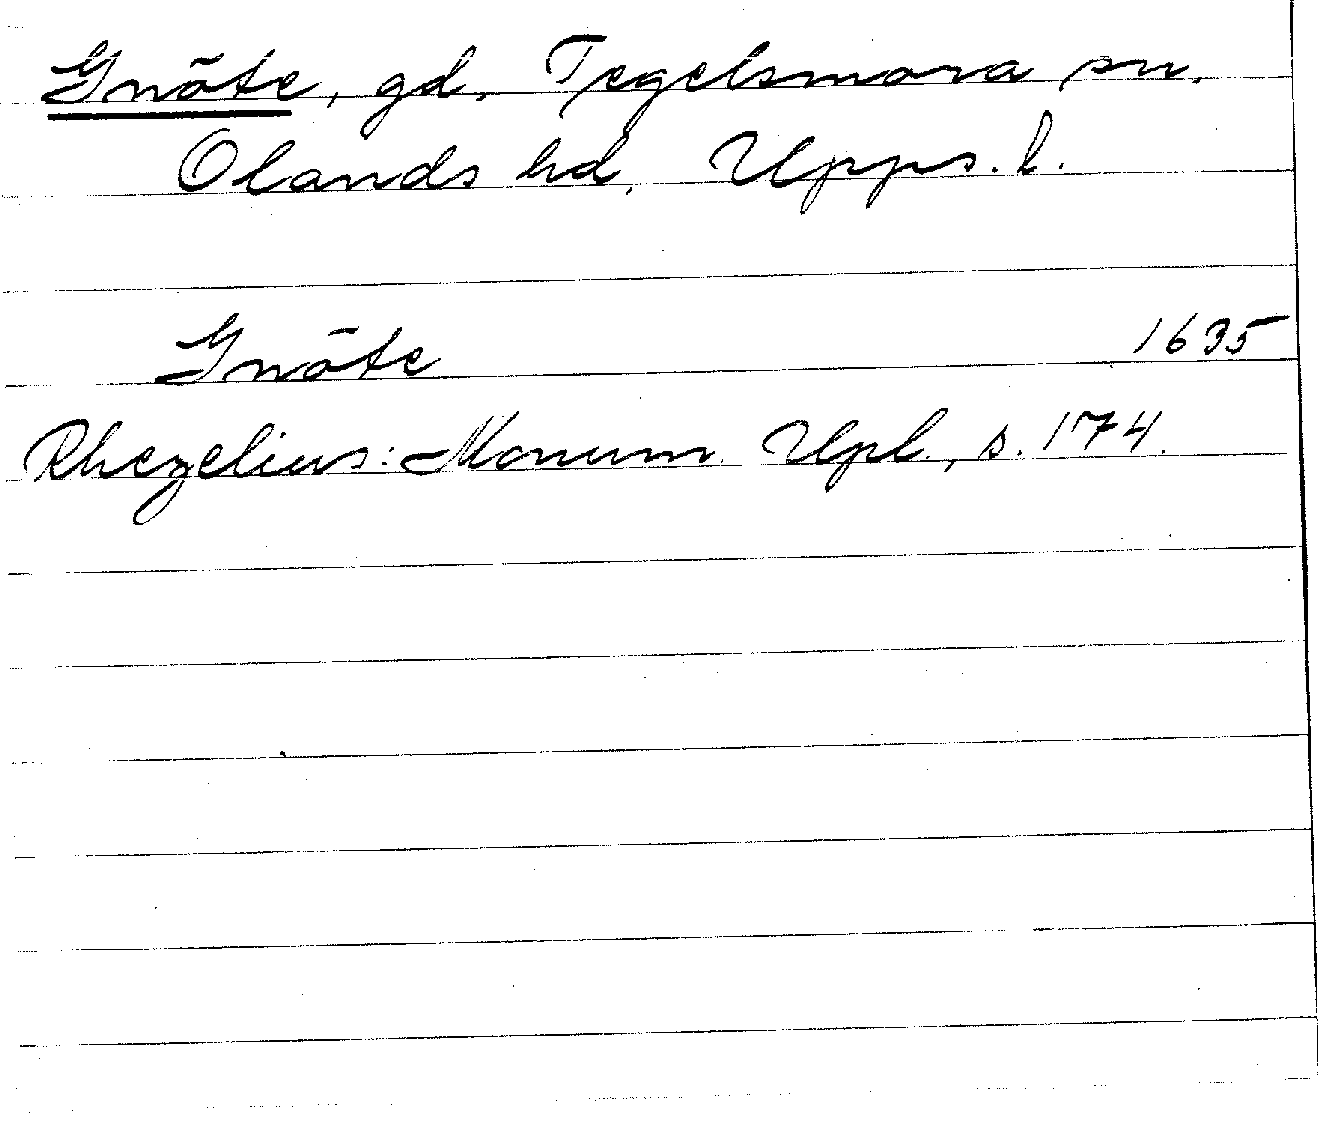 Gnöte, gd. Tegelsmora sn.
Olands hd. Upps. l.
Gnöte 1635
Rhezelius: Monum. Upl., s. 174.